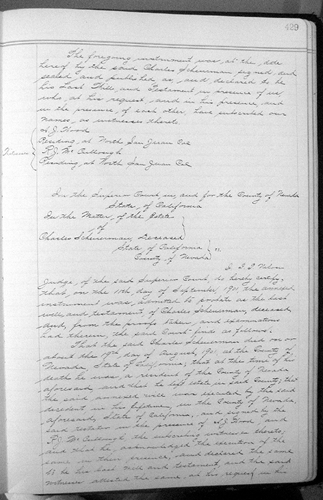 429
The foregoing instrument was, at the date
hereof by the said Charles Scheurman, signed and
sealed and published as, and declared to be
his Last Will and Testament in presence of us
who, at his request, and in his presence, and
in the presence of each other, have subscribed our
names, as witnesses thereto.
A. J. Flood
Residing at North San Juan Cal
P. J. McCullough
Residing at North San Juan Cal
In the Superior Court, in and for the County of Nevada
State, of California
In the Matter, of the Estate
of
Charles Scheuerman, Deceased
State, of California
County of Nevada
Nilon
Judge, of the said Superior Court, do hereby certify,
that, on the 11th day of September, 1901 the annexed
instrument was, admitted to probate as the last
will and testament of Charles Scheuerman, deceased,
and, from the proofs taken, and examination
had therein, the said Court finds as follows:
That the said Charles Scheuerman died on or
about the 19th day of August, 1901, at the County of
Nevada, State of California, that at the time of his
death he was, a resident of the County of Nevada
aforesaid, and that he left estate in said County; that
the said annexed will was executed by the said
decedent in his lifetime, in the County of Nevada,
aforesaid, State of California, and signed by the
said testator in the presence of A. J. Flood and
P. J. McCullough the subscribing witnesses thereto;
and that he, acknowledged the execution of the
same in their presence, and declared the same
to be his last will and testament, and the said
witnesses attested the same, at his request in his